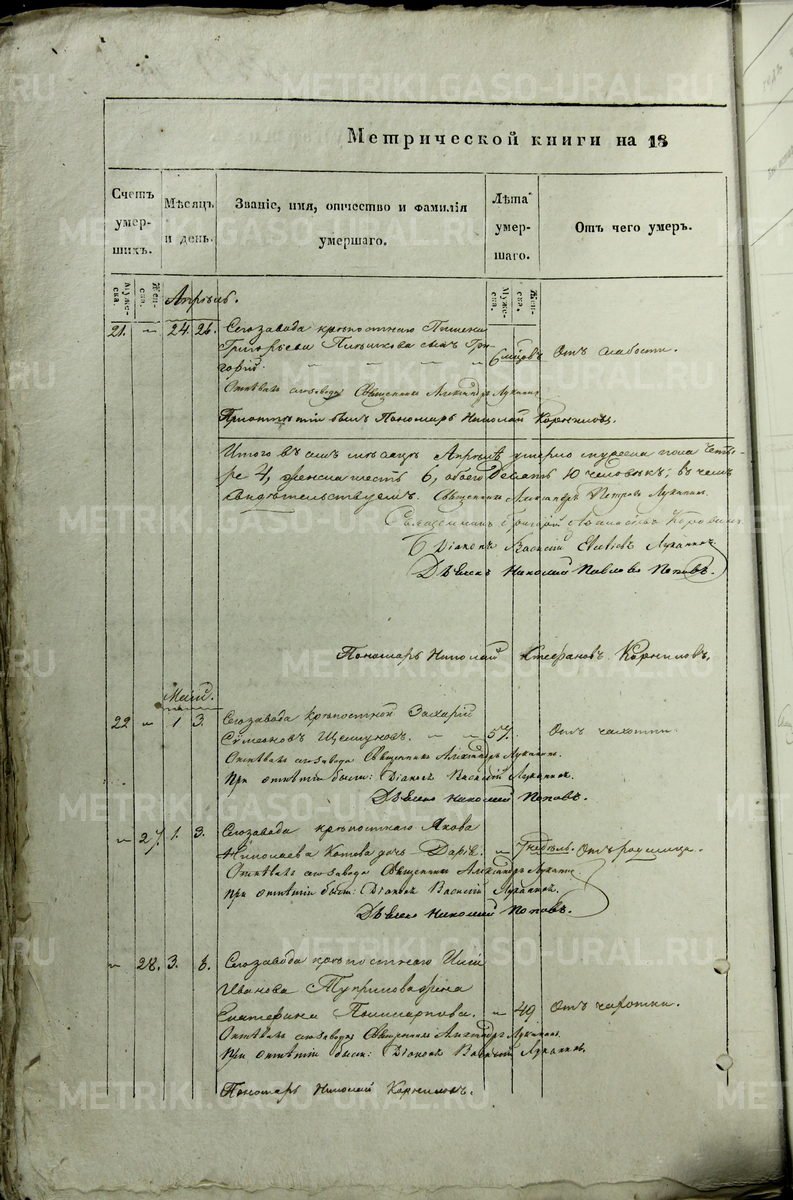 Метрической книги на 18
Счетъ умер-шихъ.
Мѣсяцъ и день.
Званіе, имя, отчество и фамилія умершаго.
Лѣта умер-шаго.
Отъ чего умеръ.
Муже-ска.
Жен-ска.
Муже-ска.
Жен-ска.
Апрѣль.
21. " 24. 26. Сегозавода крѣпостнаго
Григорьева сынъ Гри-
горій. 6 мѣсцовъ Отъ слабости.
Отпѣвалъ сегозавода Священникъ Александръ Луканинъ
При отпѣтіи былъ Пономарь Николай Корниловъ.
Итого въ семъ мѣсяцѣ Апрѣлѣ умерло мужеска пола четы-
ре 4, женска шесть 6, обоего десять 10 человѣкъ; въ чемъ
свидѣтельствуемъ. Священникъ Александръ Петровъ Луканинъ.
Священникъ Григорій
Діаконъ Василій Луканинъ.
Дьячекъ Николай Павловъ Поповъ.
Пономарь Николай Стефановъ Корниловъ.
Маій.
22 " 1 3. Сегозавода крѣпостной Захарій
Семеновъ 57. Отъ чахотки.
Отпѣвалъ сегозавода Священникъ Александръ Луканинъ.
При отпѣтіи были: Діаконъ Василій Луканинъ.
Дьячекъ Николай Поповъ.
" 27. 1. 3. Сегозавода крѣпостнаго Якова
Николаева Котова дочь Дарія. " 7 недѣль. Отъ родимца.
Отпѣвалъ сегозавода Священникъ Александръ Луканинъ
При отпѣтіи были: Діаконъ Василій Луканинъ.
Дьячекъ Николай Поповъ.
" 28. 3. Сегозавода крѣпостнаго
Иванова жена
Екатерина Поликарпова. " 49 Отъ чахотки.
Отпѣвалъ сегозавода Священникъ Александръ Луканинъ.
При отпѣтіи были: Діаконъ Василій Луканинъ.
Пономарь Николай Корниловъ.
METRIKI.GASO-URAL.RU